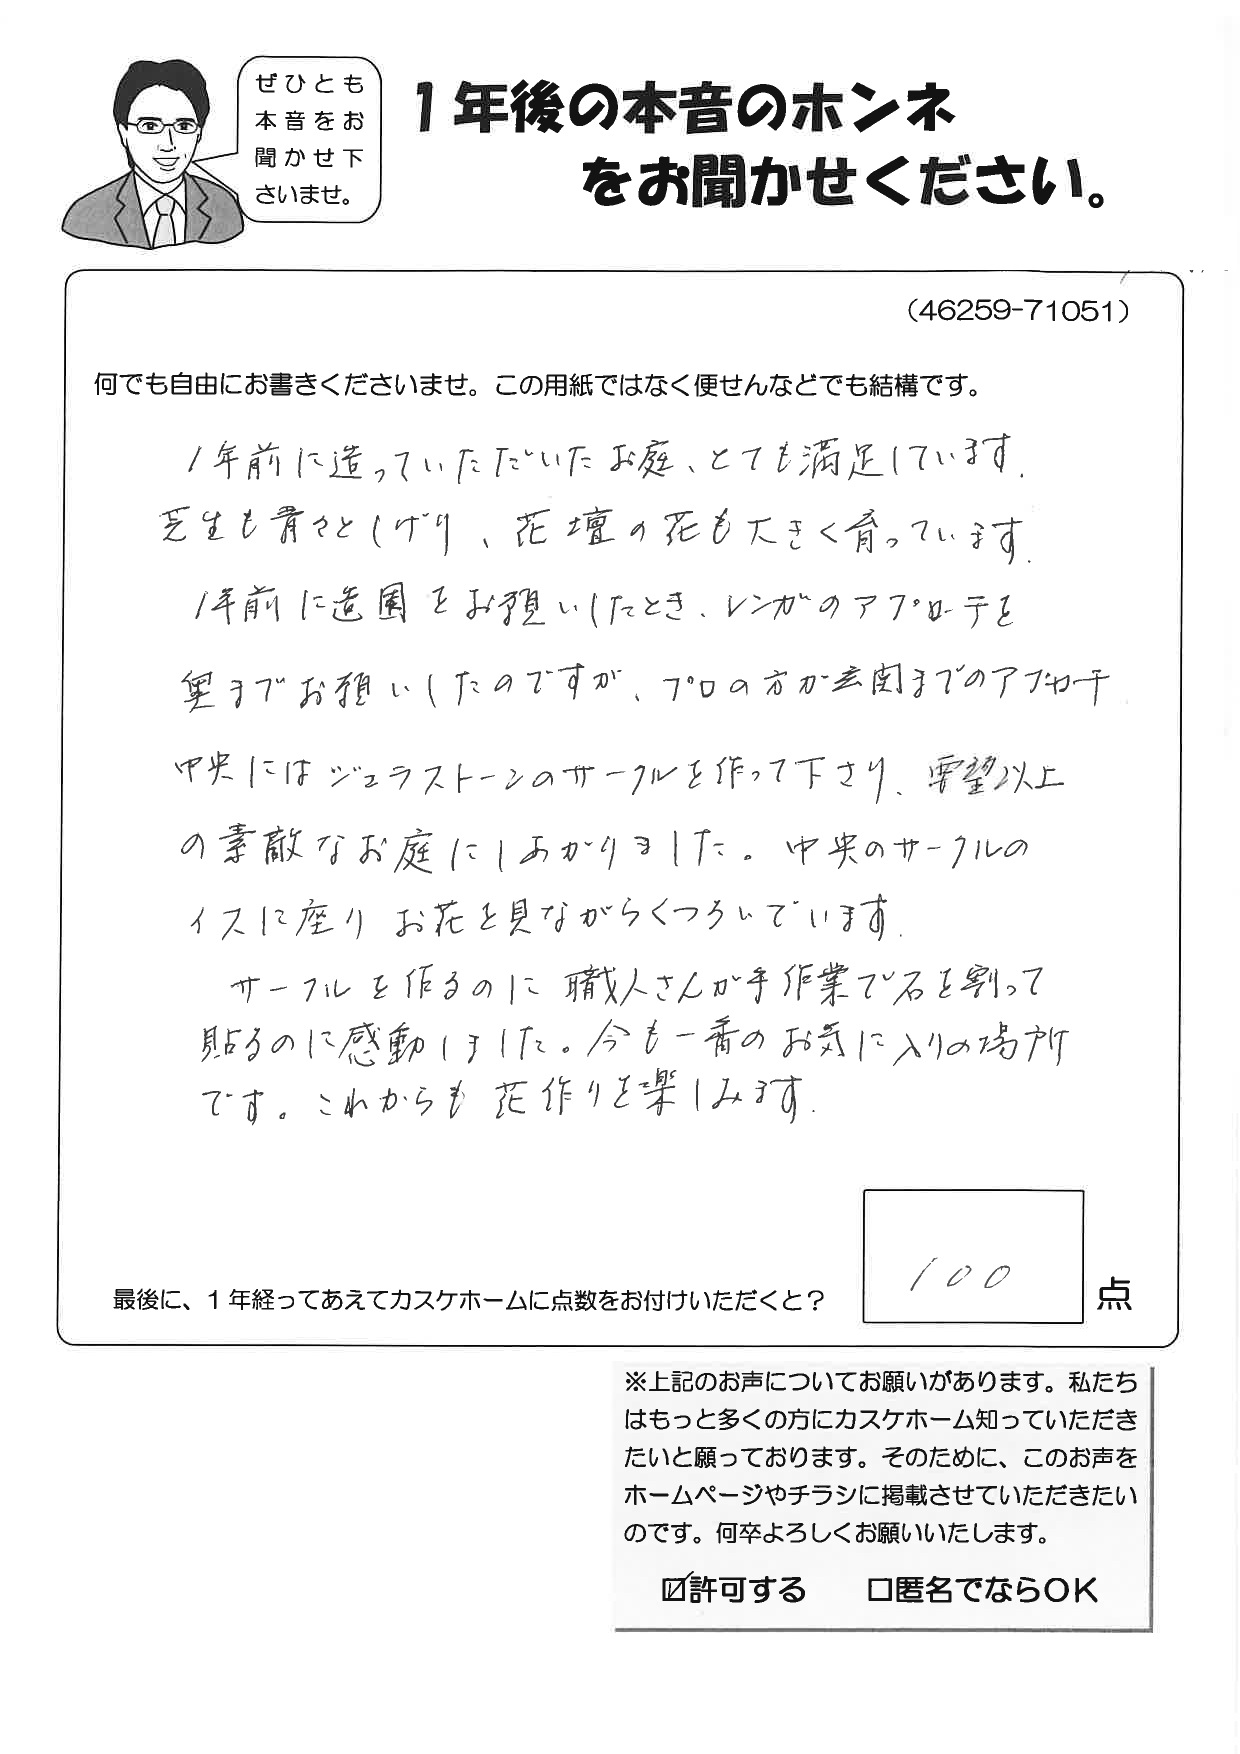 ぜひとも
本音をお
聞かせ下
さいませ。
1年後の本音のホンネ
をお聞かせください。
（46259-71051）
何でも自由にお書きくださいませ。この用紙ではなく便せんなどでも結構です。
1年前に造っていただいたお庭、とても満足しています。
芝生も青々としげり、花壇の花も大きく育っています。
1年前に造園をお願いしたとき、レンガのアプローチを
奥までお願いしたのですが、プロの方が玄関までのアプローチ
中央にはジュラストーンのサークルを作って下さり、要望以上
の素敵なお庭にしあがりました。中央のサークルの
イスに座りお花を見ながらくつろいでいます。
サークルを作るのに職人さんが手作業で石を割って
貼るのに感動しました。今も一番のお気に入りの場所
です。これからも花作りを楽しみます。
最後に、1年経ってあえてカスケホームに点数をお付けいただくと？
100
点
※上記のお声についてお願いがあります。私たち
はもっと多くの方にカスケホーム知っていただき
たいと願っております。そのために、このお声を
ホームページやチラシに掲載させていただきたい
のです。何卒よろしくお願いいたします。
☑許可する　□匿名でならOK